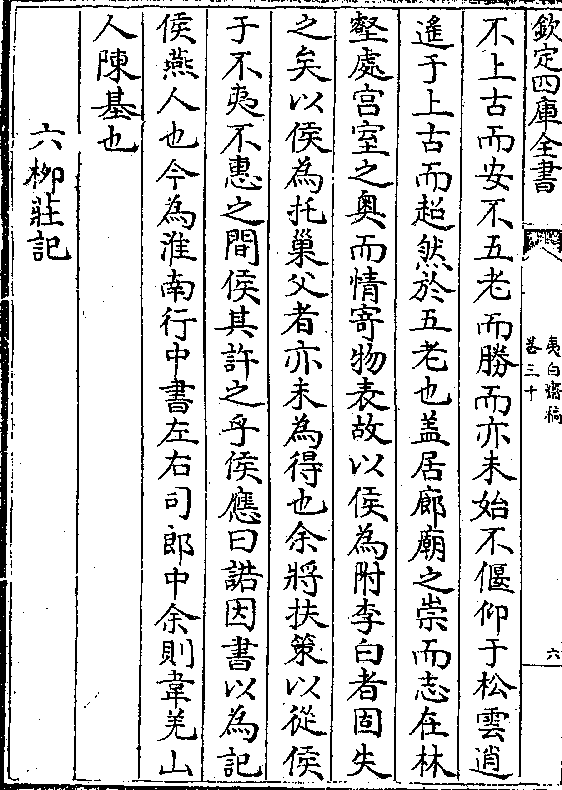 欽定四庫全書
夷白齋稿
卷三十
六
不上古而安不五老而勝而亦未始不偃仰于松雲逍
遙于上古而超然於五老也盖居廊廟之崇而志在林
壑處宫室之奥而情寄物表故以侯為附李白者固失
之矣以侯為托巢父者亦未為得也余將扶策以從侯
于不夷不惠之間侯其許之乎侯應曰諾因書以為記
侯燕人也今為淮南行中書左右司郎中余則韋羌山
人陳基也
六柳莊記